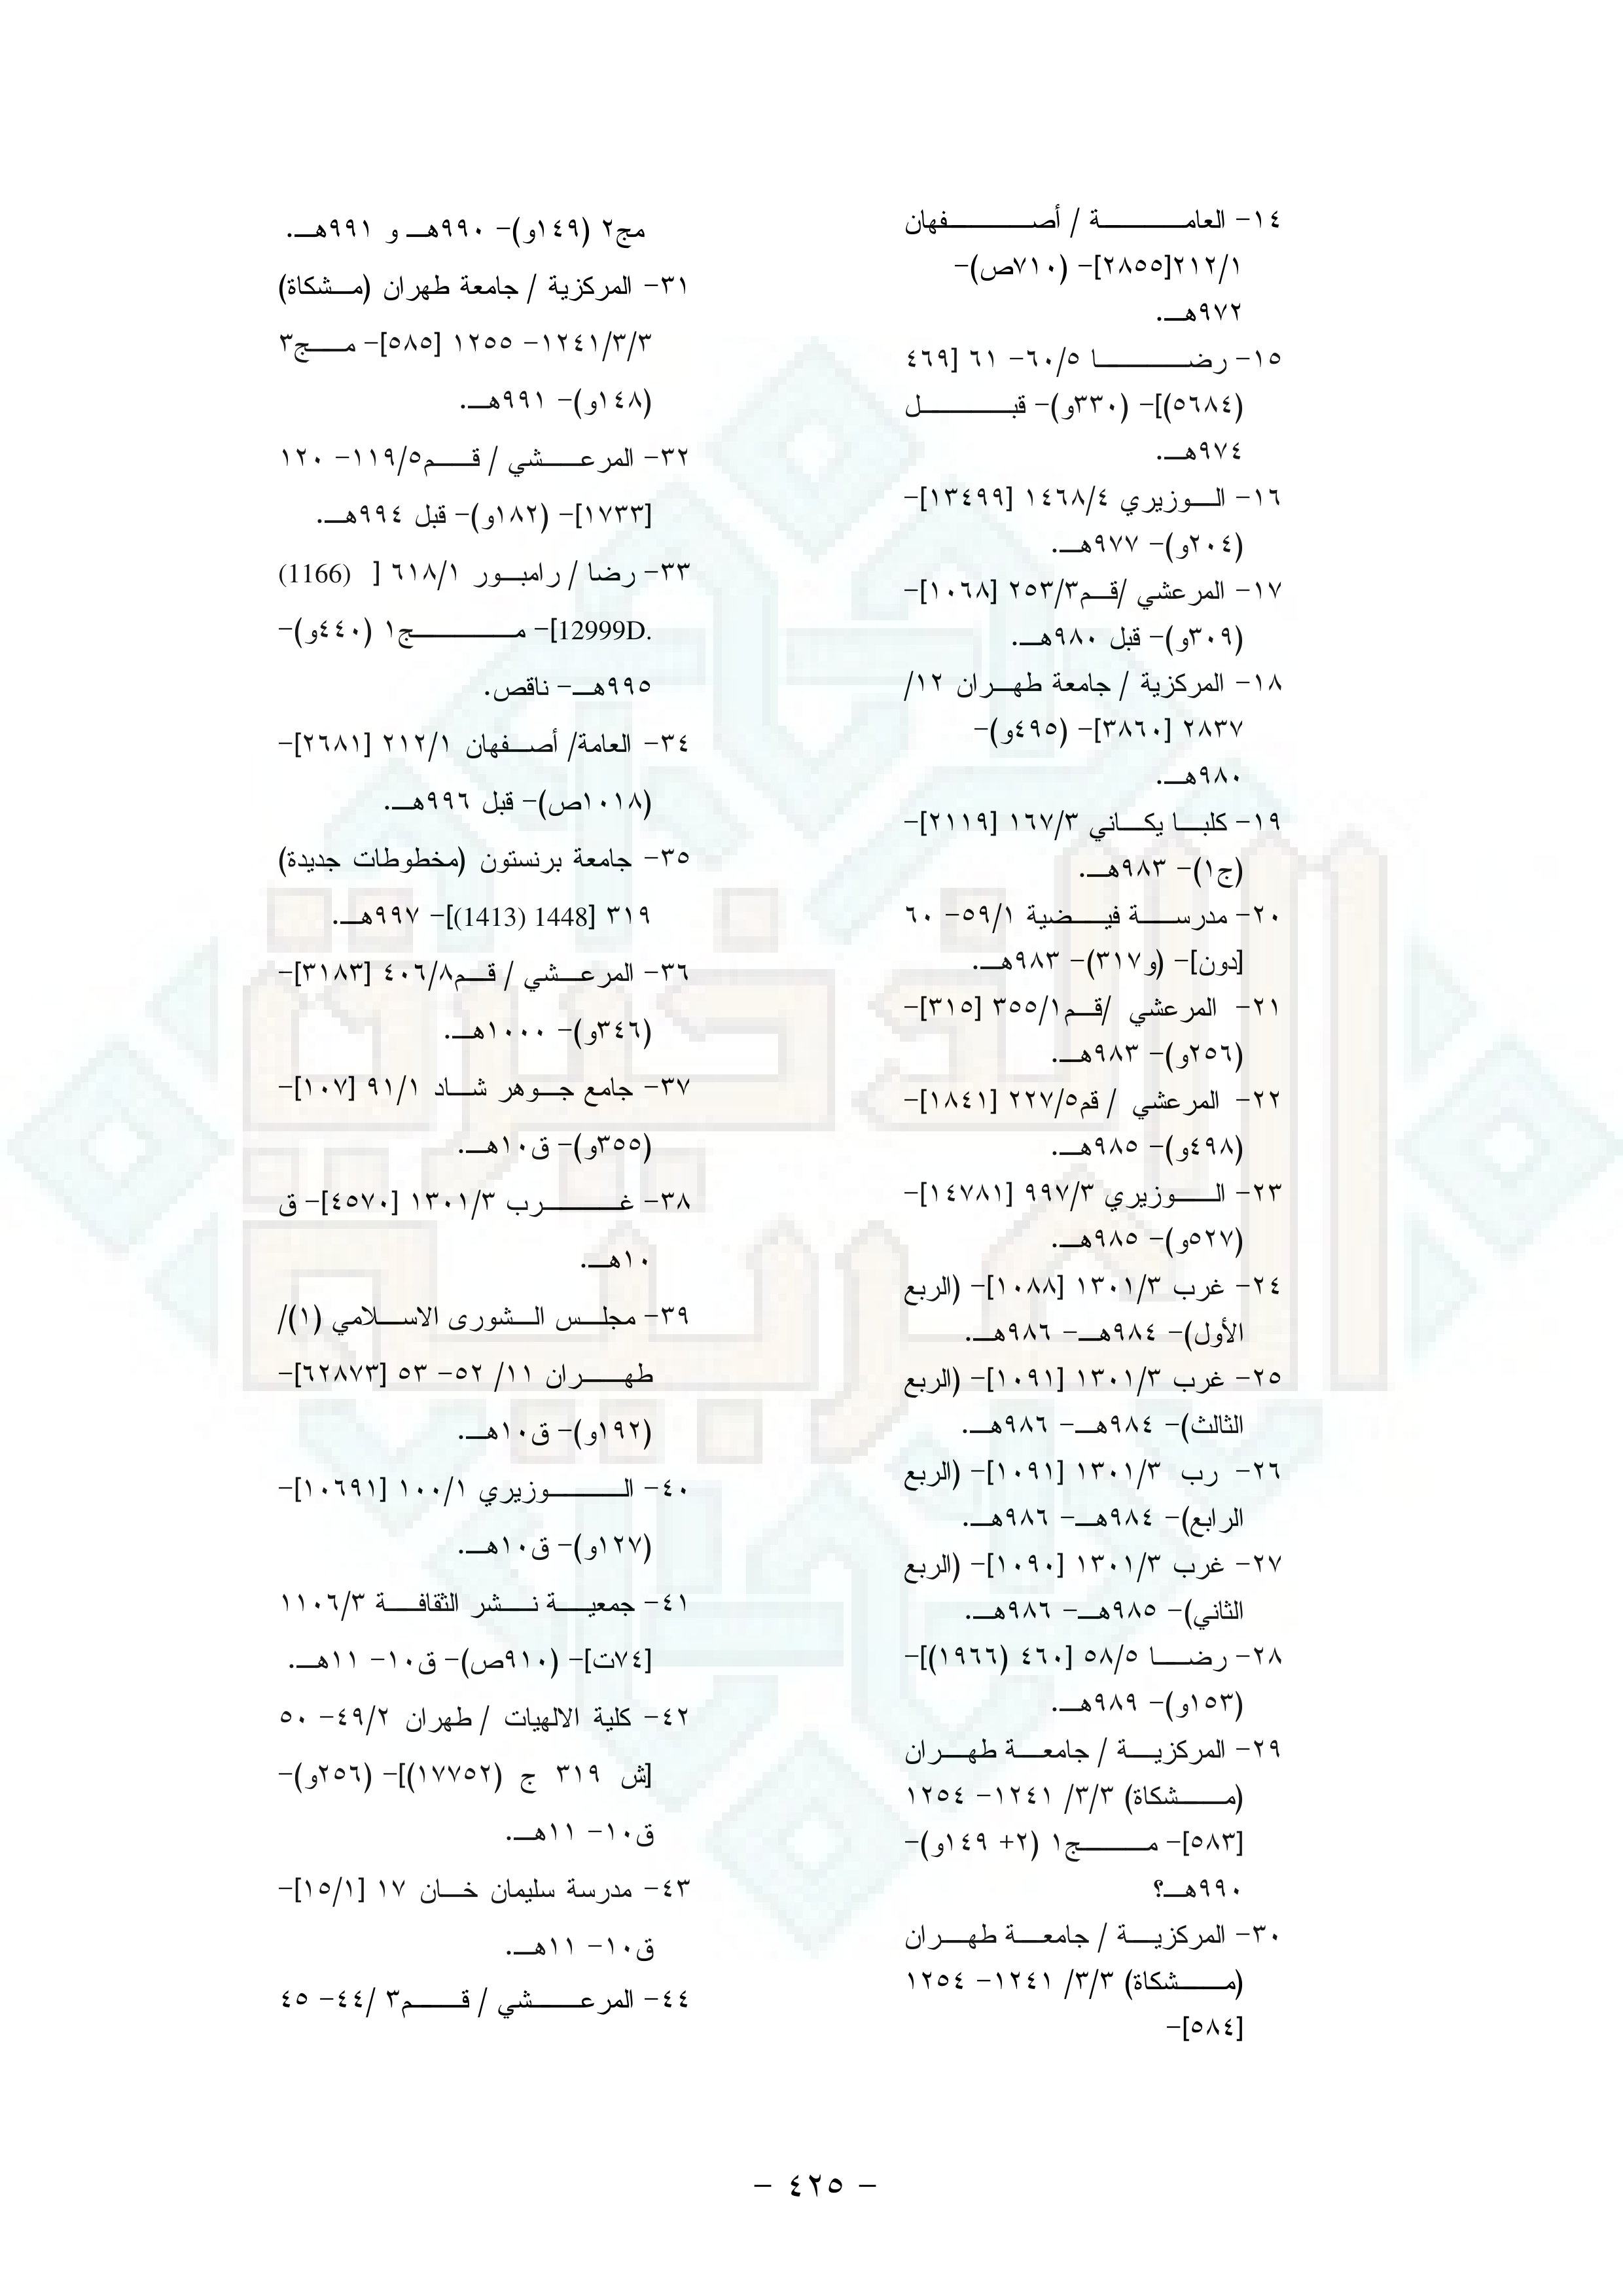 ١٤- العامة / أصفهان
٢١٢/١[٢٨٥٥]- (٧١٠ص)-
٩٧٢هـ.
١٥- رضا ٦٠/٥- ٦١ [٤٦٩
(٥٦٨٤)]- (٣٣٠و)- قبل
٩٧٤هـ.
١٦- الوزيري ١٤٦٨/٤ [١٣٤٩٩]-
(٢٠٤و)- ٩٧٧هـ.
١٧- المرعشي /قم٢٥٣/٣ [١٠٦٨]-
(٣٠٩و)- قبل ٩٨٠هـ.
١٨- المركزية / جامعة طهران ١٢/
٢٨٣٧ [٣٨٦٠]- (٤٩٥و)-
٩٨٠هـ.
١٩- كلبا يكاني ١٦٧/٣ [٢١١٩]-
(ج١)- ٩٨٣هـ.
٢٠- مدرسة فيضية ٥٩/١- ٦٠
[دون]- (و٣١٧)- ٩٨٣هـ.
٢١- المرعشي /قم٣٥٥/١ [٣١٥]-
(٢٥٦و)- ٩٨٣هـ.
٢٢- المرعشي / قم٢٢٧/٥ [١٨٤١]-
(٤٩٨و)- ٩٨٥هـ.
٢٣- الوزيري ٩٩٧/٣ [١٤٧٨١]-
(٥٢٧و)- ٩٨٥هـ.
٢٤- غرب ١٣٠١/٣ [١٠٨٨]- (الربع
الأول)- ٩٨٤هـ- ٩٨٦هـ.
٢٥- غرب ١٣٠١/٣ [١٠٩١]- (الربع
الثالث)- ٩٨٤هـ- ٩٨٦هـ.
٢٦- رب ١٣٠١/٣ [١٠٩١]- (الربع
الرابع)- ٩٨٤هـ- ٩٨٦هـ.
٢٧- غرب ١٣٠١/٣ [١٠٩٠]- (الربع
الثاني)- ٩٨٥هـ- ٩٨٦هـ.
٢٨- رضا ٥٨/٥ [٤٦٠ (١٩٦٦)]-
(١٥٣و)- ٩٨٩هـ.
٢٩- المركزية / جامعة طهران
(مشكاة) ٣/٣/ ١٢٤١- ١٢٥٤
[٥٨٣]- مج١ (٢+ ١٤٩و)-
٩٩٠هـ؟
٣٠- المركزية / جامعة طهران
(مشكاة) ٣/٣/ ١٢٤١- ١٢٥٤
[٥٨٤]-
مج٢ (١٤٩و)- ٩٩٠هـ و ٩٩١هـ.
٣١- المركزية / جامعة طهران (مشكاة)
١٢٤١/٣/٣- ١٢٥٥ [٥٨٥]- مج٣
(١٤٨و)- ٩٩١هـ.
٣٢- المرعشي / قم١١٩/٥- ١٢٠
[١٧٣٣]- (١٨٢و)- قبل ٩٩٤هـ.
٣٣- رضا / رامبور ٦١٨/١ [ (1166)
12999D.]- مج١ (٤٤٠و)-
٩٩٥هـ- ناقص.
٣٤- العامة/ أصفهان ٢١٢/١ [٢٦٨١]-
(١٠١٨ص)- قبل ٩٩٦هـ.
٣٥- جامعة برنستون (مخطوطات جديدة)
٣١٩ [1448 (1413)]- ٩٩٧هـ.
٣٦- المرعشي / قم٤٠٦/٨ [٣١٨٣]-
(٣٤٦و)- ١٠٠٠هـ.
٣٧- جامع جوهر شاد ٩١/١ [١٠٧]-
(٣٥٥و)- ق١٠هـ.
٣٨- غرب ١٣٠١/٣ [٤٥٧٠]- ق
١٠هـ.
٣٩- مجلس الشورى الاسلامي (١)/
طهران ١١/ ٥٢- ٥٣ [٦٢٨٧٣]-
(١٩٢و)- ق١٠هـ.
٤٠- الوزيري ١٠٠/١ [١٠٦٩١]-
(١٢٧و)- ق١٠هـ.
٤١- جمعية نشر الثقافة ١١٠٦/٣
[٧٤ت]- (٩١٠ص)- ق١٠- ١١هـ.
٤٢- كلية الالهيات / طهران ٤٩/٢- ٥٠
[ش ٣١٩ ج (١٧٧٥٢)]- (٢٥٦و)-
ق١٠- ١١هـ.
٤٣- مدرسة سليمان خان ١٧ [١٥/١]-
ق١٠- ١١هـ.
٤٤- المرعشي / قم٣ /٤٤- ٤٥
- ٤٢٥ -
الذخيرة
العربية